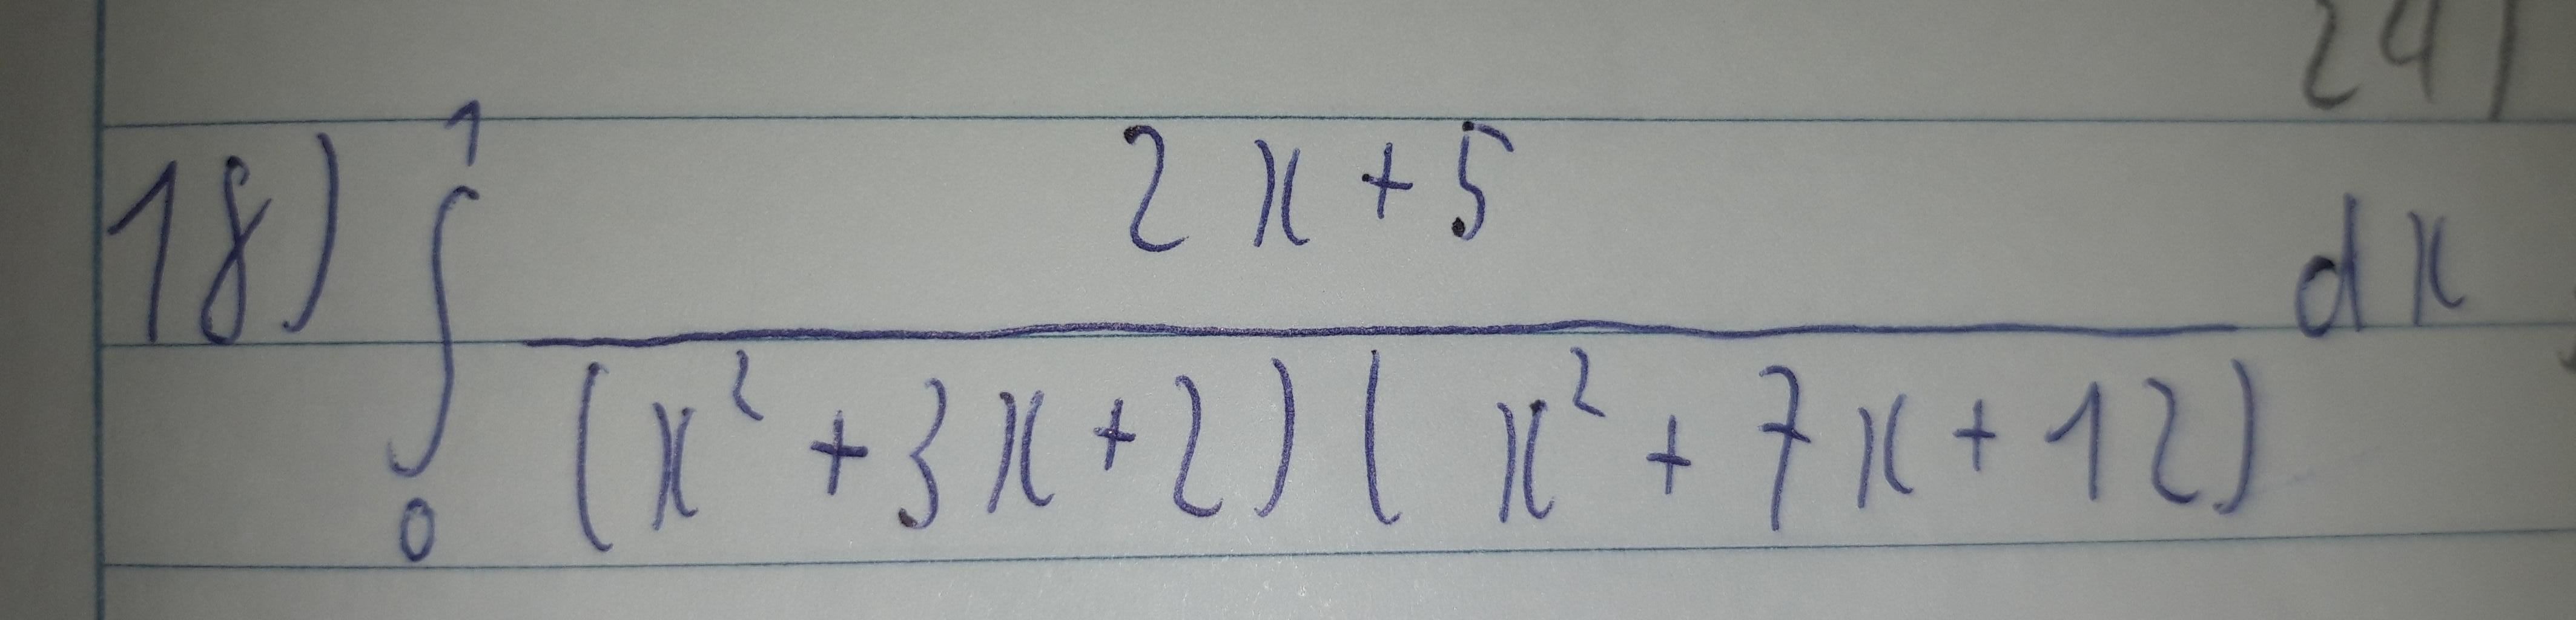 24)
18) ∫₀¹ (2x+5)/((x²+3x+2)(x²+7x+12)) dx